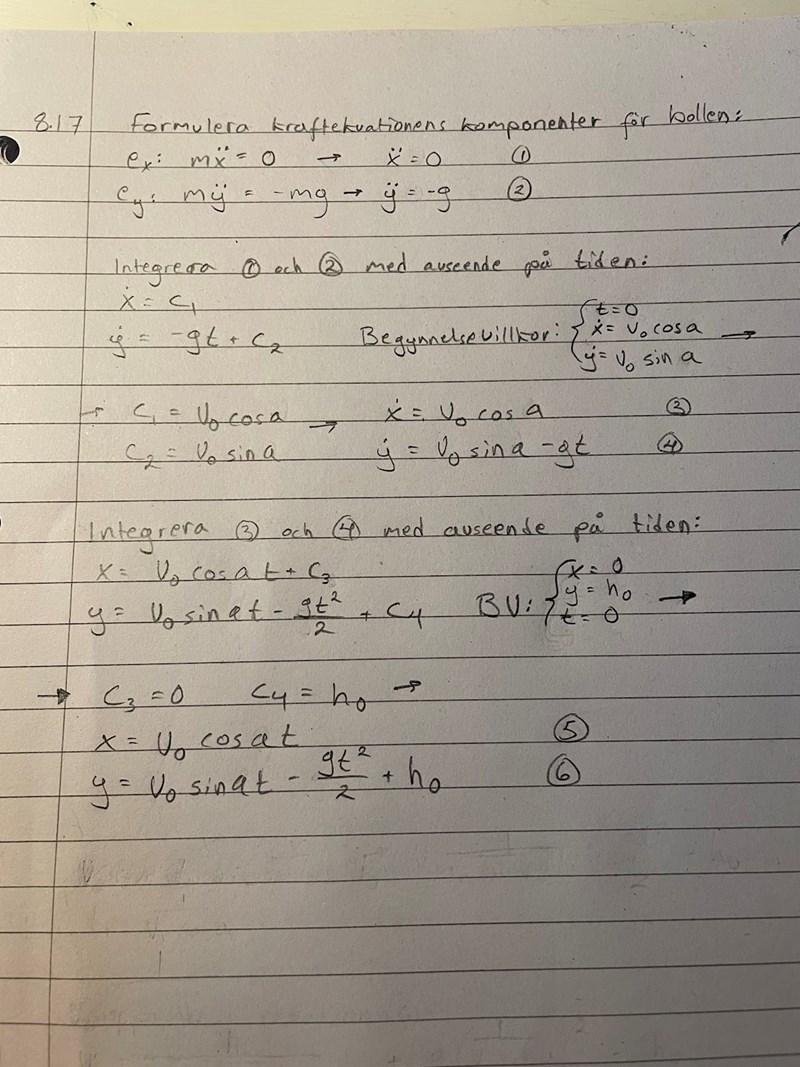 8.17 Formulera kraftekvationens komponenter för bollen:
ex: mẍ = 0 → ẍ = 0 ①
ey: mÿ = -mg → ÿ = -g ②
Integrera ① och ② med avseende på tiden:
ẋ = C₁
ẏ = -gt + C₂ Begynnelsevillkor: { t=0
ẋ = v₀ cos a →
ẏ = v₀ sin a
→ C₁ = v₀ cos a → ẋ = v₀ cos a ③
C₂ = v₀ sin a ẏ = v₀ sin a - gt ④
Integrera ③ och ④ med avseende på tiden:
x = v₀ cos a t + C₃
y = v₀ sin a t - gt²/2 + C₄ BV: { x = 0
y = h₀ →
t = 0
→ C₃ = 0 C₄ = h₀ →
x = v₀ cos a t ⑤
y = v₀ sin a t - gt²/2 + h₀ ⑥